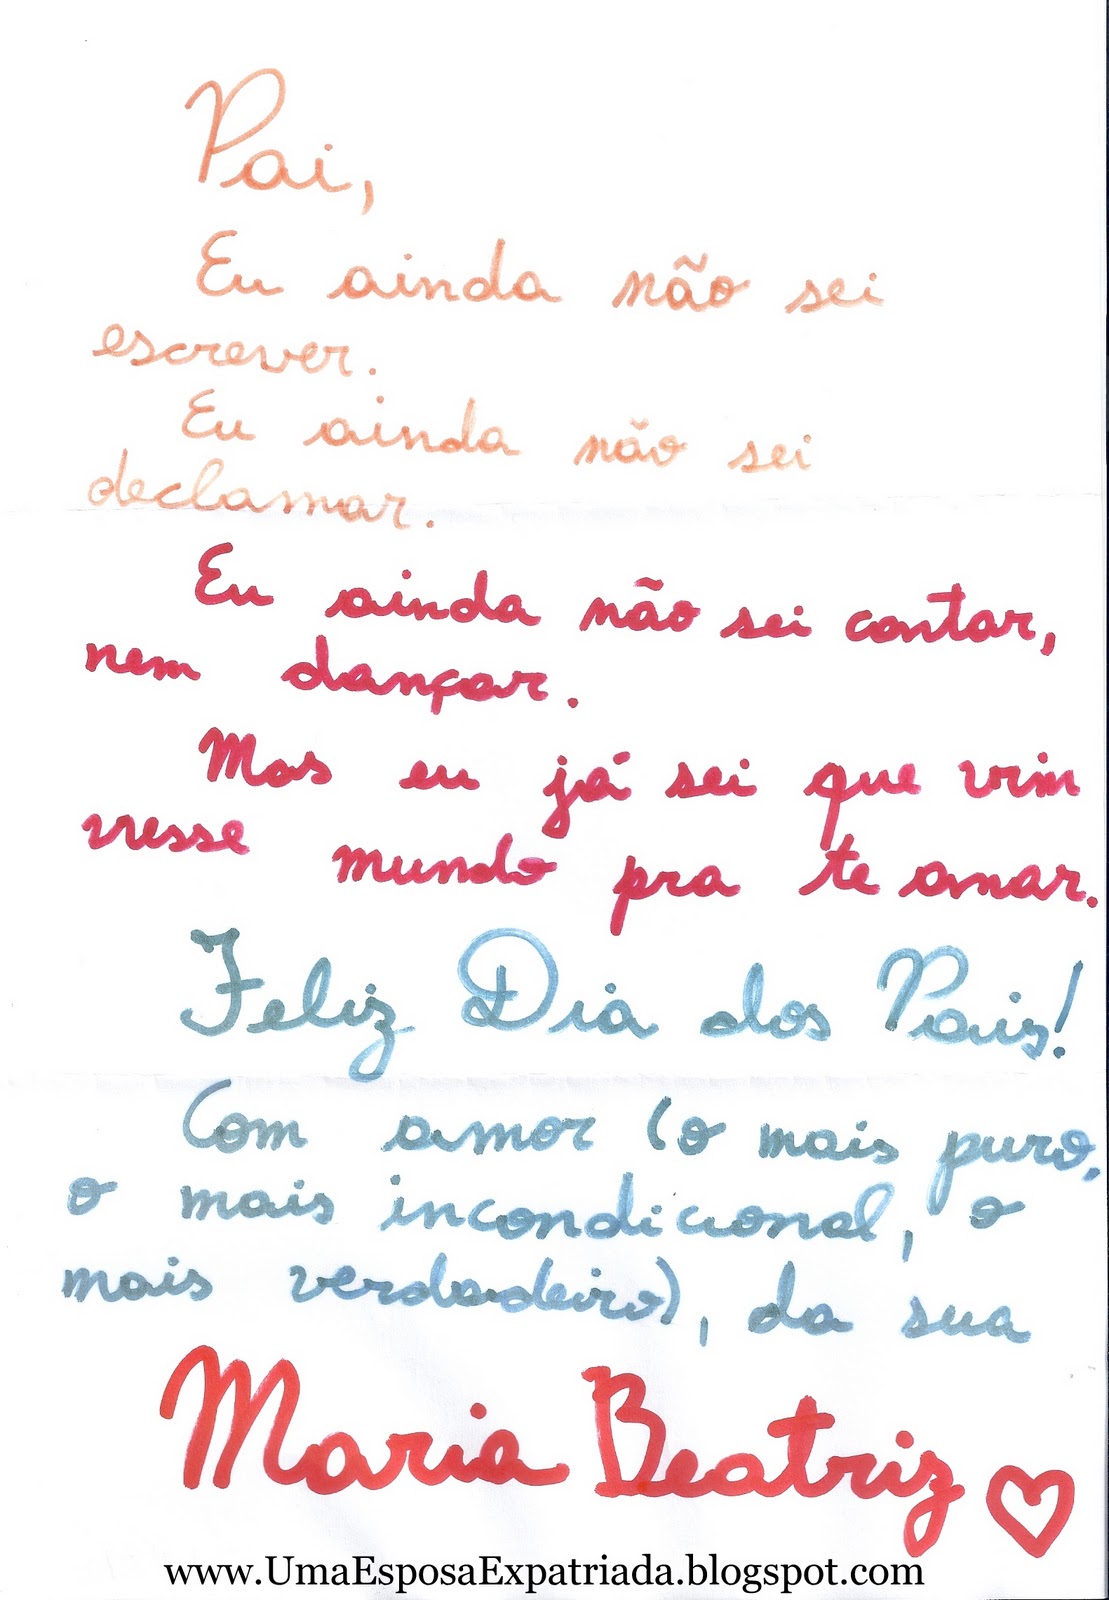 Pai,
Eu ainda não sei
escrever.
Eu ainda não sei
declamar.
Eu ainda não sei contar,
nem dançar.
Mas eu já sei que vim
nesse mundo pra te amar.
Feliz Dia dos Pais!
Com amor (o mais puro,
o mais incondicional, o
mais verdadeiro), da sua
Maria Beatriz
www.UmaEsposaExpatriada.blogspot.com